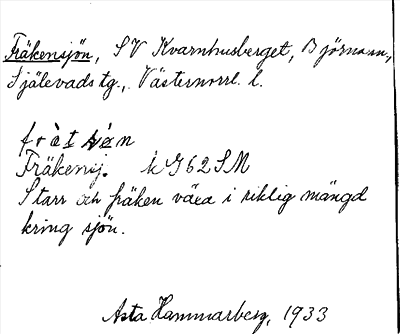 Fräkensjön, SV Kvarnhusberget, Björnann,
Själevads tg., Västernorrl. l.
Fräkensj. k G62SM
Starr och fräken växa i riklig mängd
kring sjön.
Asta Hammarberg, 1933